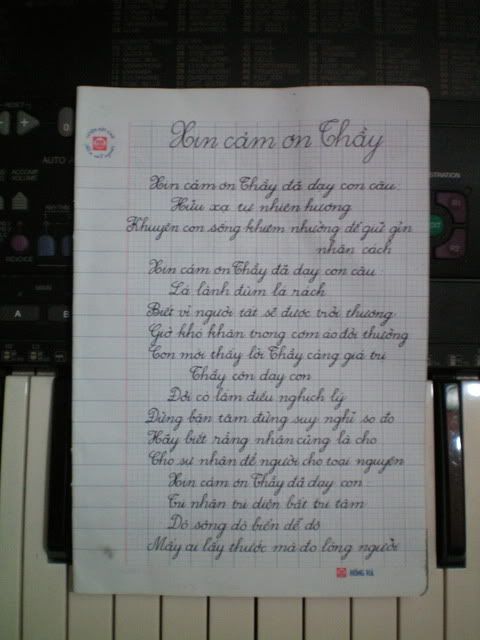 Xin cảm ơn Thầy
Xin cảm ơn Thầy đã dạy con câu:
Hữu xạ tự nhiên hương
Khuyên con sống khiêm nhường để giữ gìn
nhân cách
Xin cảm ơn Thầy đã dạy con câu
Lá lành đùm lá rách
Biết vì người tất sẽ được trời thương
Giờ khó khăn trong cơm áo đời thường
Con mới thấy lời Thầy càng giá trị
Thầy còn dạy con
Đời có lắm điều nghịch lý
Đừng bận tâm đừng suy nghĩ so đo
Hãy biết rằng nhận cũng là cho
Cho sự nhận để người cho toại nguyện
Xin cảm ơn Thầy đã dạy con:
Tri nhân tri diện bất tri tâm
Dò sông dò biển dễ dò
Mấy ai lấy thước mà đo lòng người
HỒNG HÀ
RESET
AUTO
ACCOMP
VOLUME
MAIN
A
B
R1
R2